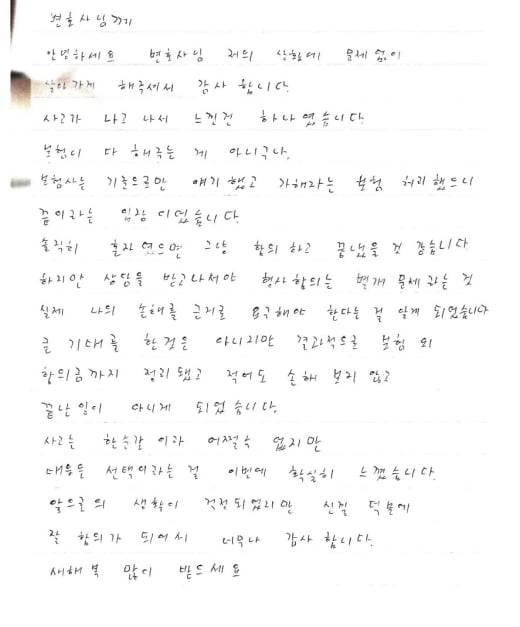 변호사님께
안녕하세요 변호사님 저의 상황에 문제 없이
살아가게 해주셔서 감사 합니다.
사고가 나고 나서 느낀건 하나 였습니다.
보험이 다 해주는 게 아니구나.
보험사는 기준으로만 얘기 했고 가해자는 보험 처리 했으니
끝이라는 입장 이었습니다
솔직히 혼자 였으면 그냥 합의 하고 끝냈을 것 같습니다
하지만 상담을 받고나서야 형사합의는 별개 문제라는 것
실제 나의 손해를 근거로 요구해야 한다는 걸 알게 되었습니다
큰 기대를 한것은 아니지만 결과적으로 보험 외
합의금까지 정리 됐고 적어도 손해 보지 않고
끝난일이 아니게 되었습니다.
사고는 한순간 이라 어쩔수 없지만
대응은 선택이라는 걸 이번에 확실히 느꼈습니다.
앞으로의 생활이 걱정되었지만 신길 덕분에
잘 합의가 되어서 너무나 감사 합니다.
새해 복 많이 받으세요